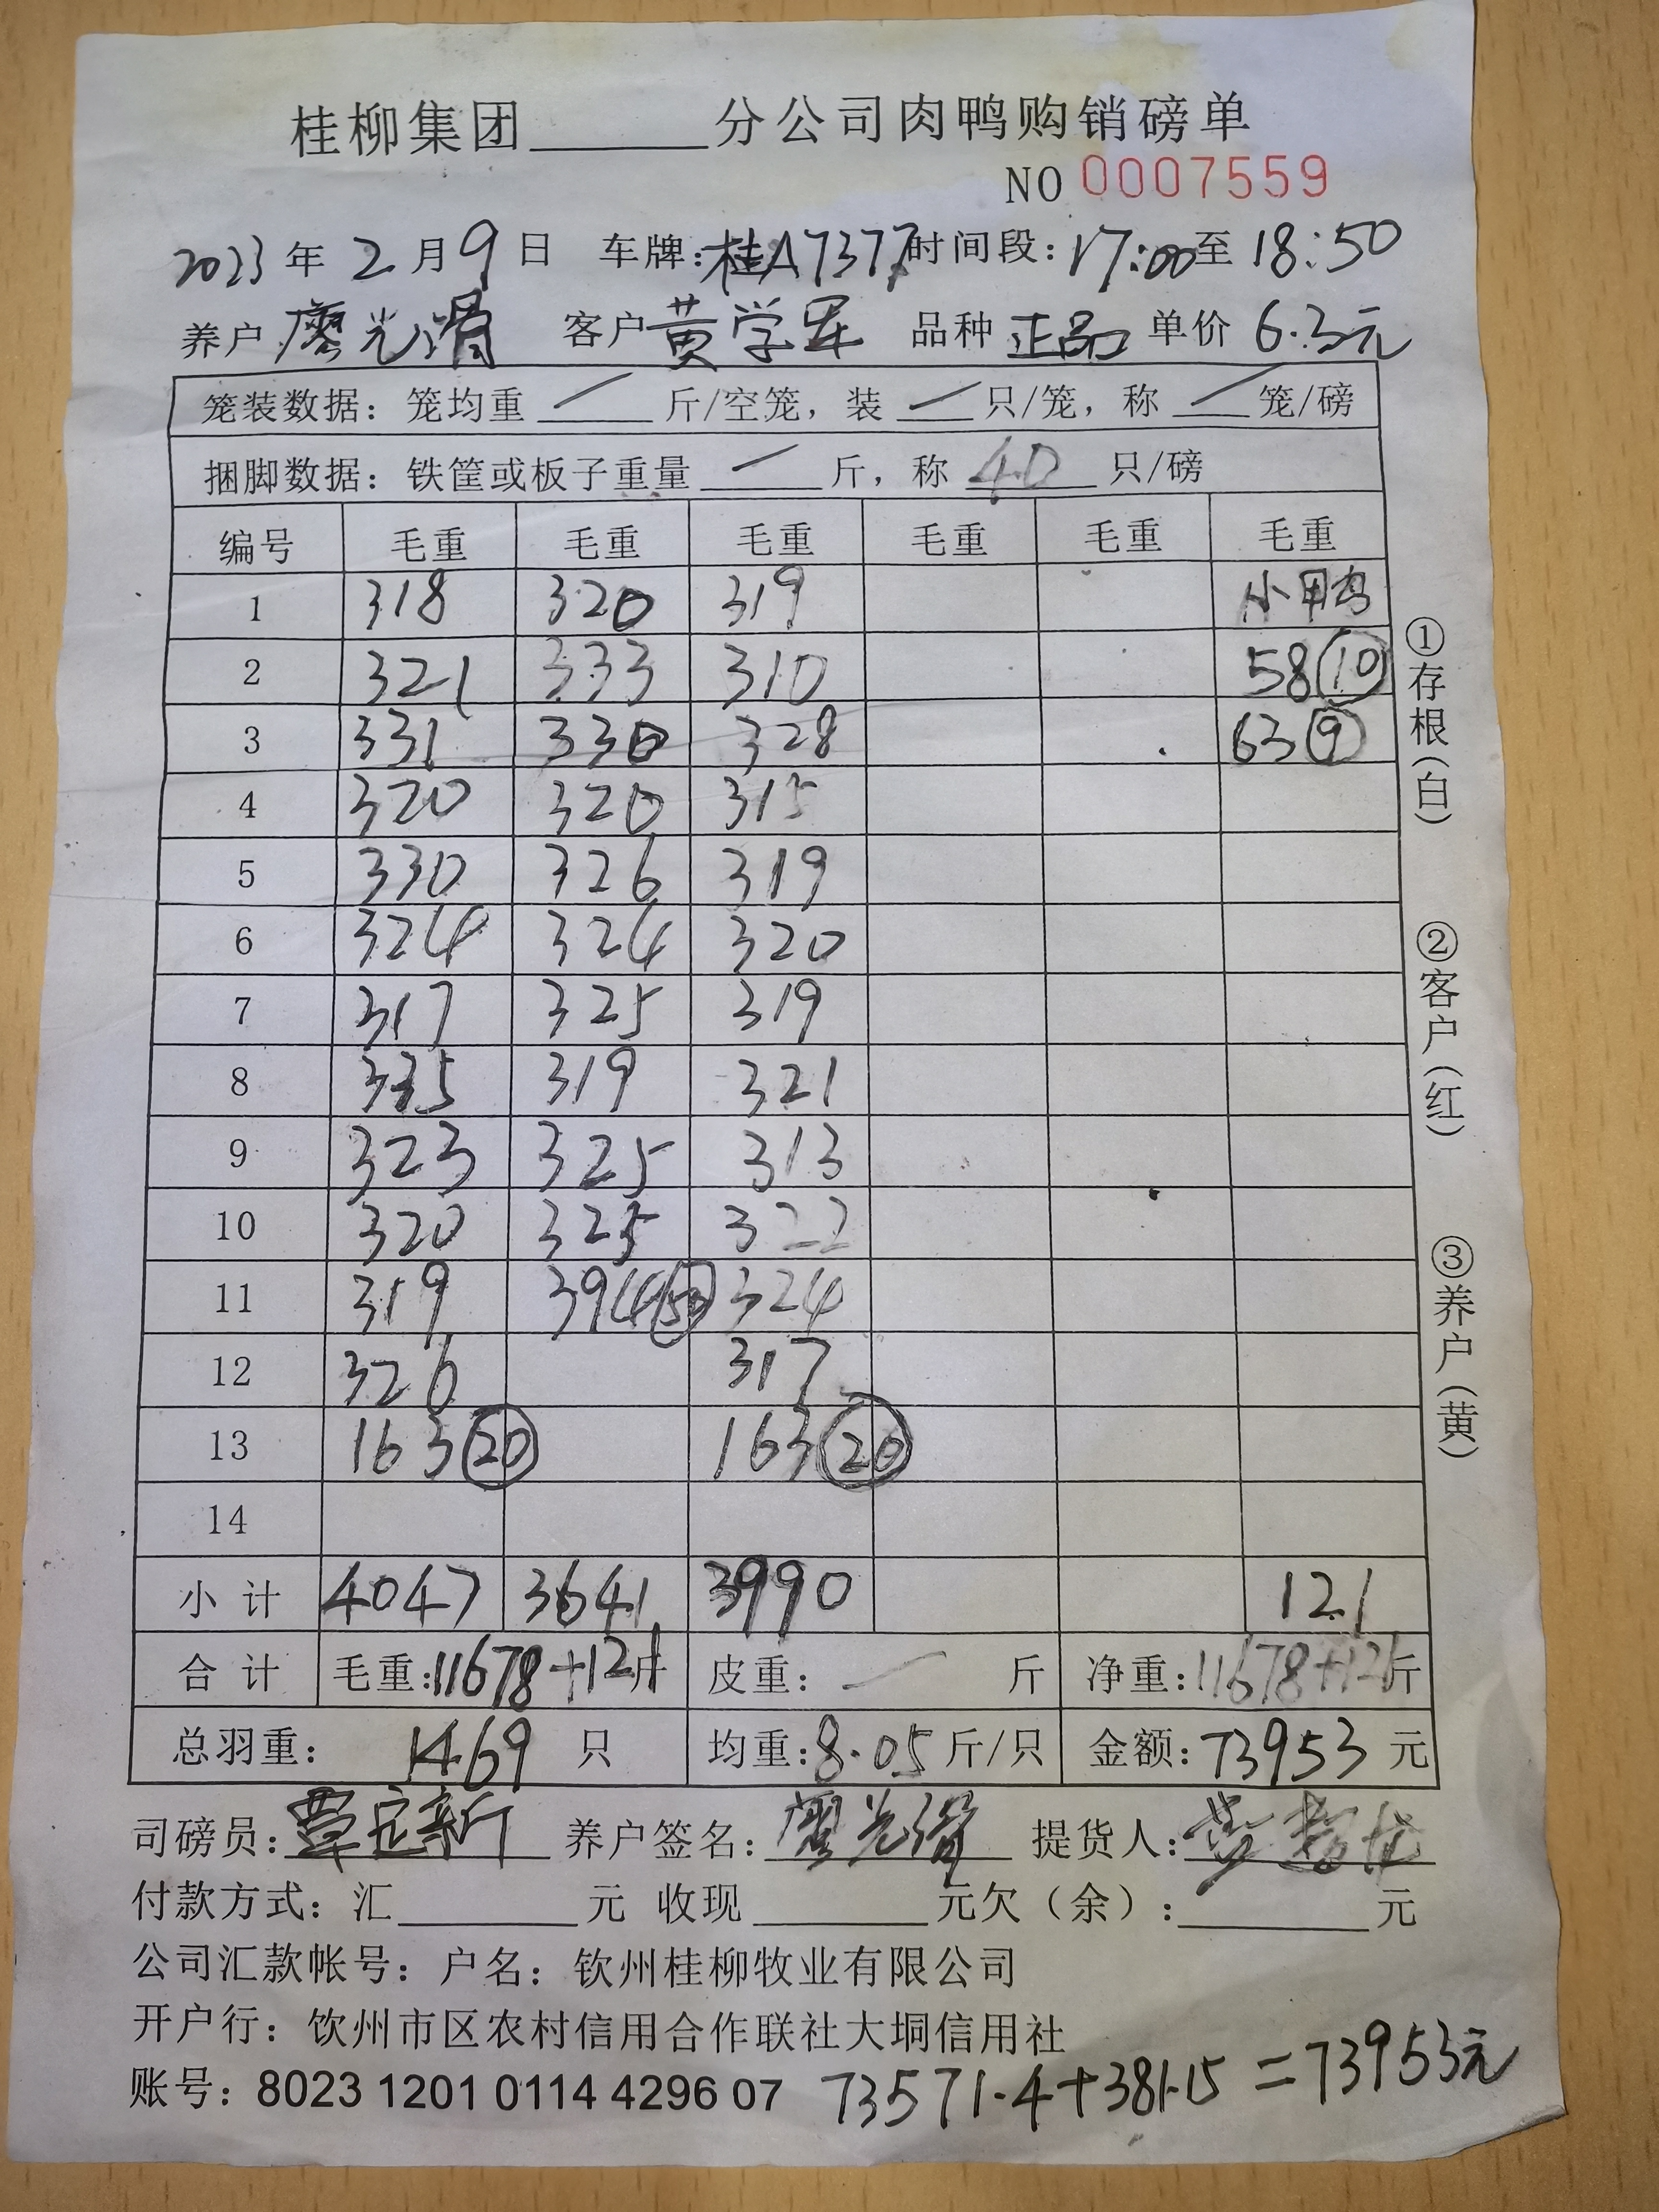 桂柳集团______分公司肉鸭购销磅单
NO 0007559
2023 年 2 月 9 日 车牌：桂A7377 时间段：17:00 至 18:50
养户 廖光滑 客户 黄学军 品种 正品 单价 6.3元
笼装数据：笼均重 / 斤/空笼，装 / 只/笼，称 / 笼/磅
捆脚数据：铁筐或板子重量 / 斤，称 40 只/磅
编号 毛重 毛重 毛重 毛重 毛重 毛重
1 318 320 319 小甲鸟
2 321 333 310 58 (10)
3 331 330 328 63 (9)
4 320 320 315
5 330 326 319
6 324 324 320
7 317 325 319
8 335 319 321
9 323 325 313
10 320 325 322
11 319 394 (50) 324
12 326 317
13 163 (20) 163 (20)
14
小计 4047 3641 3990 121
合计 毛重：11678+121斤 皮重： — 斤 净重：11678+121斤
总羽重： 1469 只 均重：8.05 斤/只 金额：73953 元
司磅员：覃定新 养户签名：廖光滑 提货人：
付款方式：汇______元 收现______元欠（余）：______元
公司汇款帐号：户名：钦州桂柳牧业有限公司
开户行：钦州市区农村信用合作联社大垌信用社
账号：8023 1201 0114 4296 07 73571.4+381.15=73953元
①存根（白）
②客户（红）
③养户（黄）